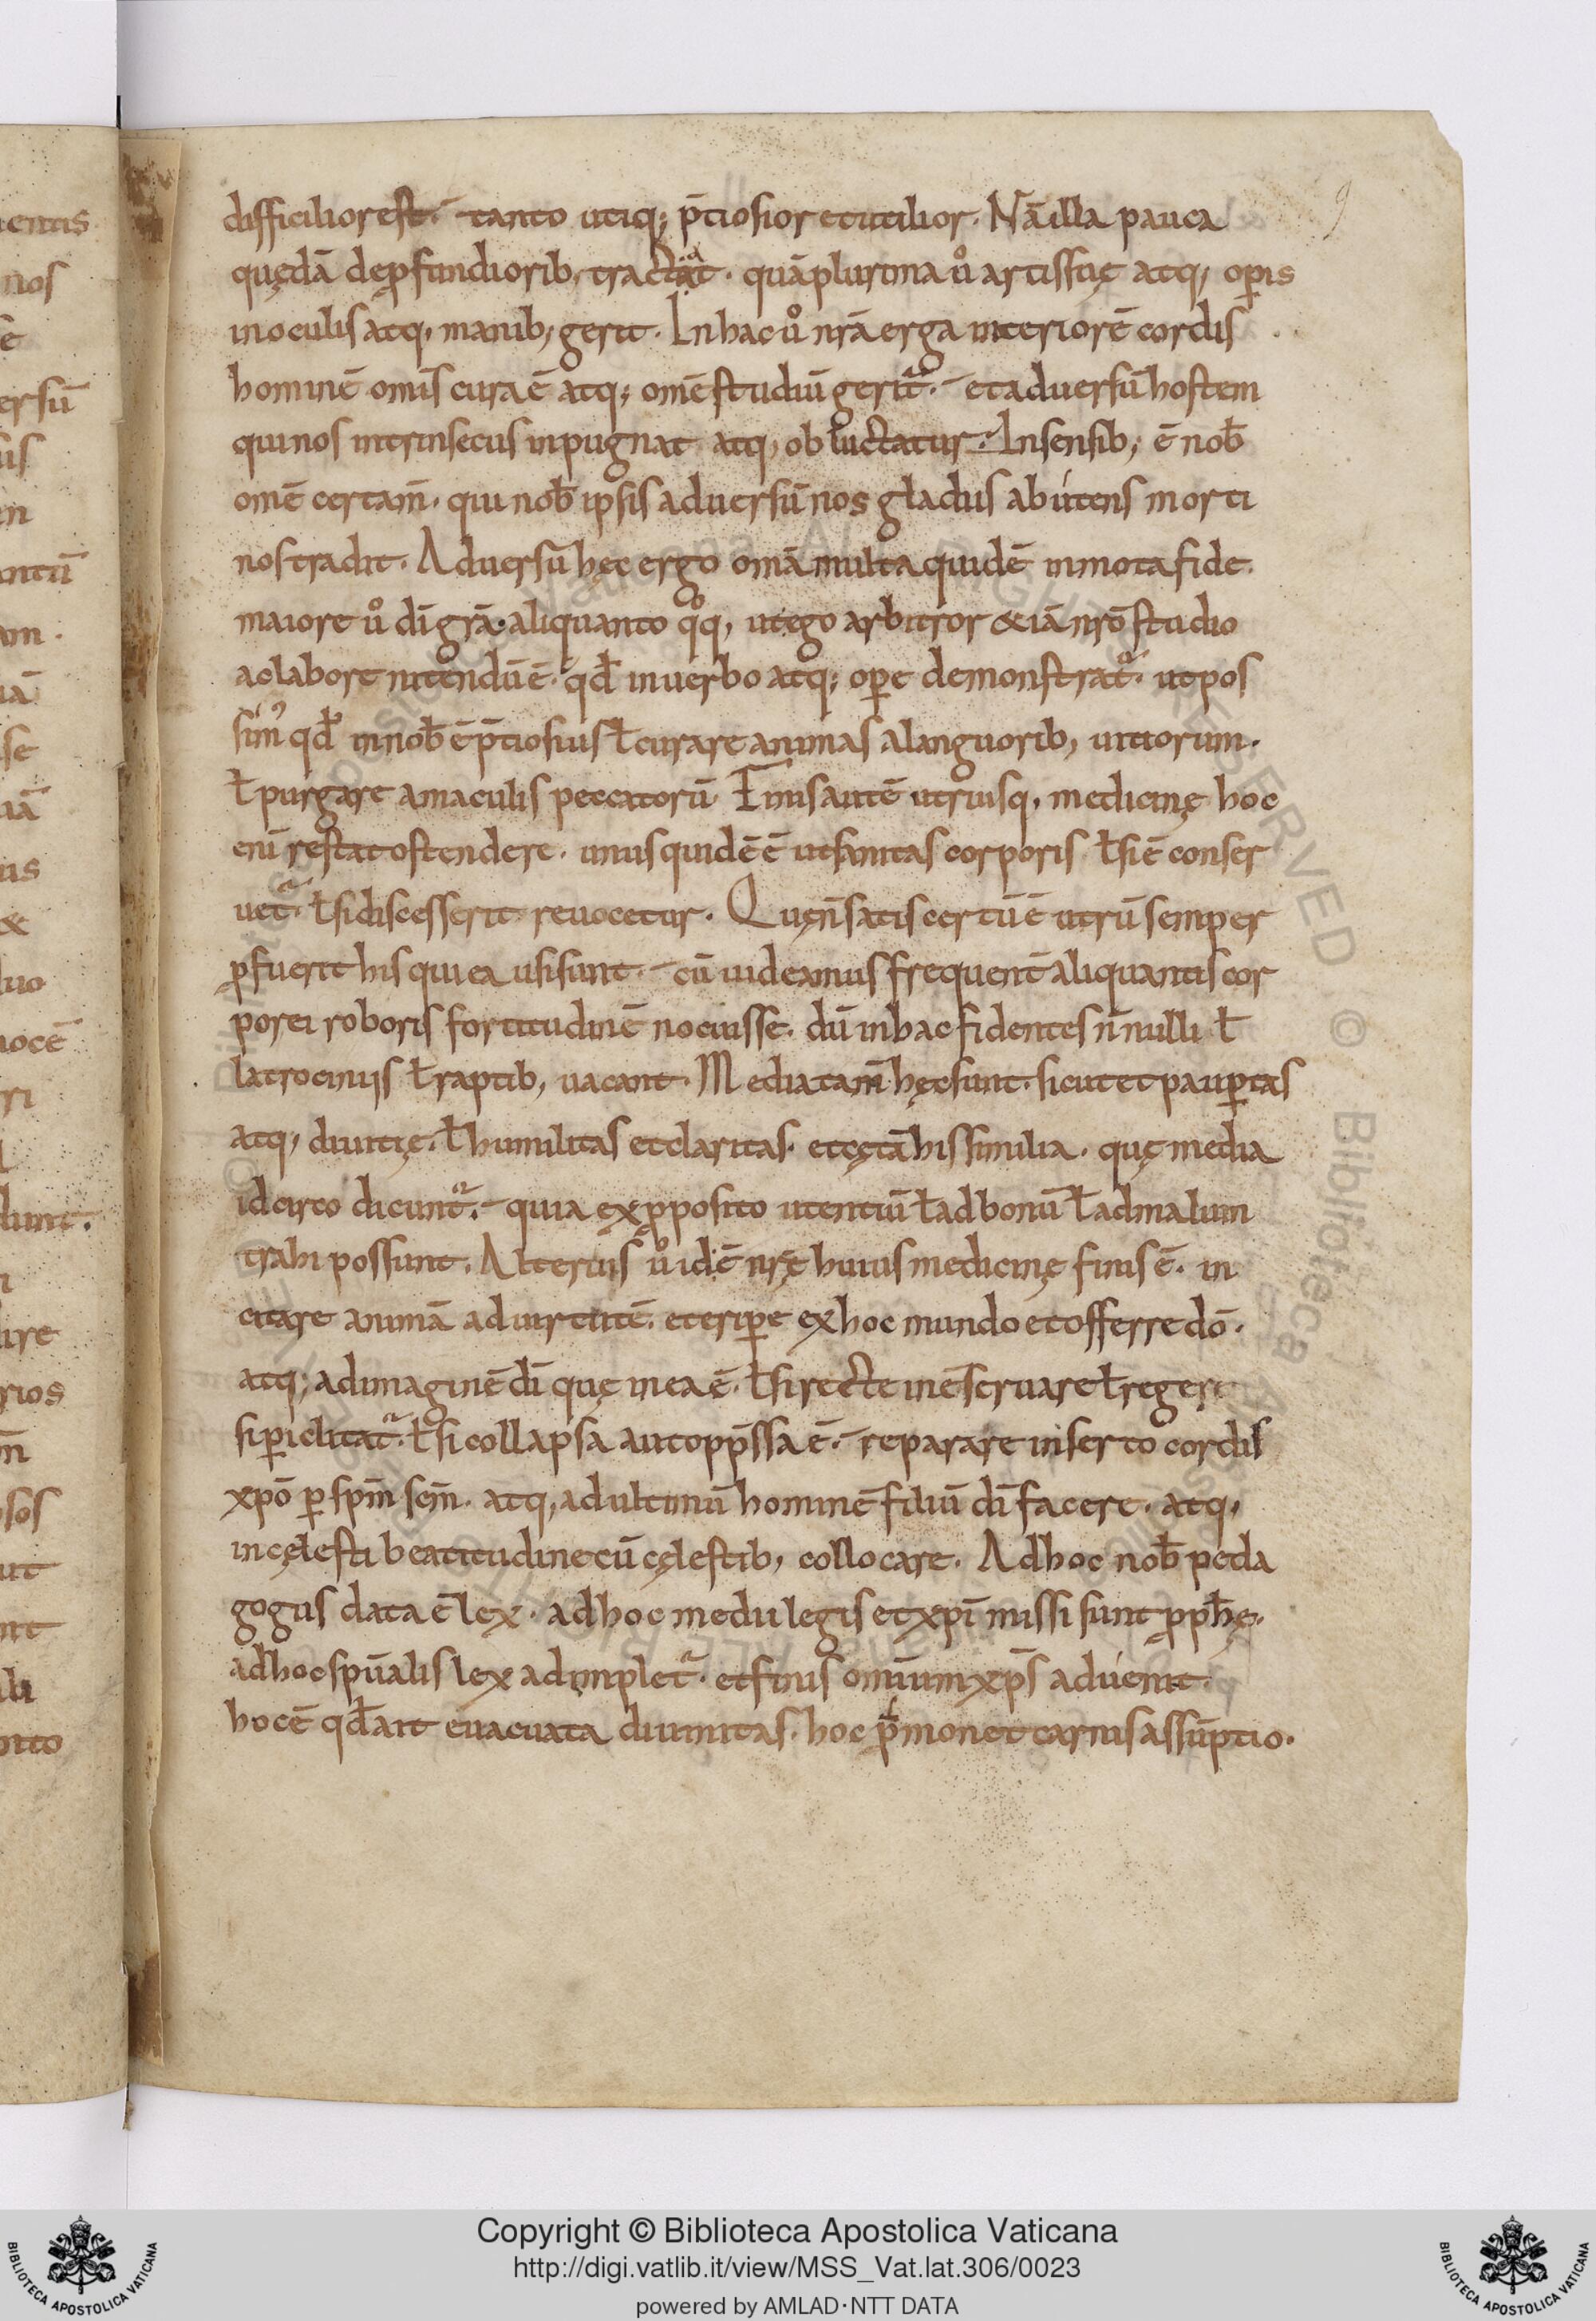 difficilior est. tanto utiq; p̄tiosior et utilior. Nā illa pauca
quędā de ꝓfundiorib; tractat. quā plurima ů artis suę atq; oꝑis
in oculis atq; manib; gerit. In hac ů nr̄a erga interiorē cordis
hominē omīs cura ē atq; omē studiū gerit᷑. et adversū hostem
qui nos intrinsecus inpugnat atq; obluctatur. In sensib; ē nob̄
omē certam̄. qui nob̄ ipsis adversū nos gladiis abútens morti
nos tradit. Adversū hęc ergo om̄a multa quidē inmota fide.
maiore ů dī grā. aliquanto qͦq; ut ego arbitror & iā nr̄o studio
ac labore nitendū ē. qd̄ in verbo atq; oꝑe demonstrat᷑. ut pos
sim᷒ qd̄ in nob̄ ē p̄tiosius ł curare animas a languorib; vitiorum.
ł purgare a maculis peccatorū. Finis autē utriusq; medicinę hoc
enī restat ostendere. unus quidē ē ut sanitas corporis ł si ē conser
vet᷑. ł si discesserit revocetur. Quę n̄ satis certū ē utrū semper
ꝓfuerit his qui ea usi sunt. cū videamus frequent̄ aliquantis cor
porei roboris fortitudinē nocuisse. dū in hac fidentes n̄nulli ł
latrociniis ł raptib; vacant. Media tam̄ hęc sunt. sicut et pauꝑtas
atq; divitię. ł humilitas et claritas. et cęta his similia. quę media
idcirco dicunt᷑. quia ex ꝓposito utentiū ł ad bonū ł ad malum
trahi possunt. Alterius ů idē nr̄ę huius medicinę finis ē. in
citare animā ad virtutē. et eriꝑe ex hoc mundo et offerre dō.
atq; ad imaginē dī quę in ea ē. ł si recte in ē servare ł regere
si ꝑiclitat᷑. ł si collapsa aut opp̄ssa ē. reparare inserto cordis
xpō ꝑ spm̄ scm̄. atq; ad ultimū hominē filiū dī facere. atq;
in cęlesti beatitudine cū cęlestib; collocare. Ad hoc nob̄ peda
gogus data ē lex. ad hoc medii legis et xpī missi sunt ꝓph̄ę.
ad hoc spūalis lex adimplet᷑. et finis omīum xps̄ advenit.
hoc ē qd̄ ait evacuata divinitas. hoc p̄monet carnis assūptio.
9
Copyright © Biblioteca Apostolica Vaticana
http://digi.vatlib.it/view/MSS_Vat.lat.306/0023
powered by AMLAD·NTT DATA
BIBLIOTECA APOSTOLICA VATICANA
BIBLIOTECA APOSTOLICA VATICANA